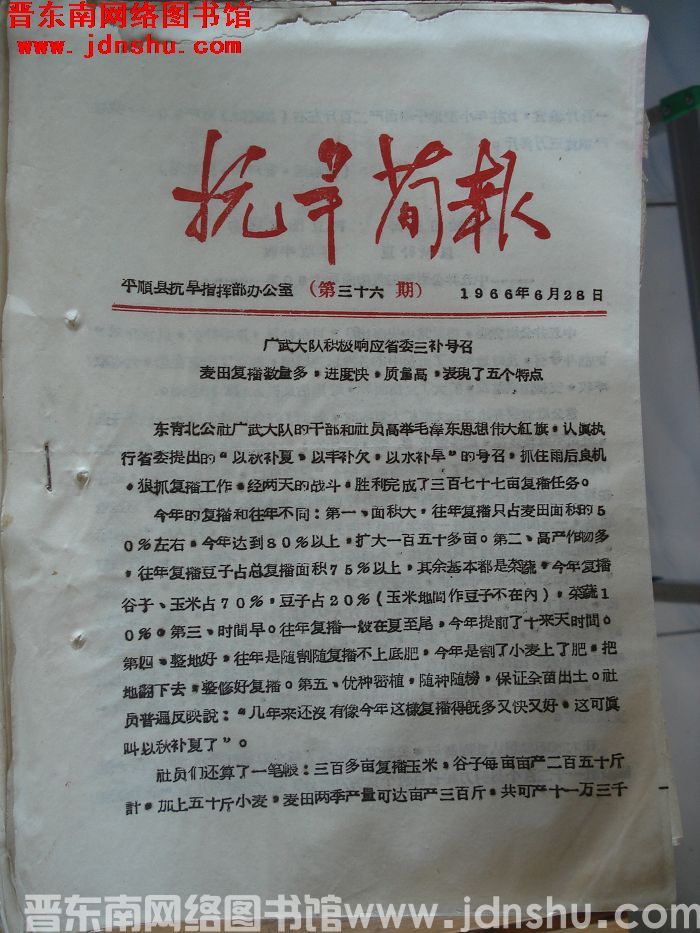 晋东南网络图书馆
www.jdnshu.com
抗旱简报
平順县抗旱指挥部办公室 (第三十六期) 1966年6月28日
广武大队积极响应省委三补号召
麦田复播数量多，进度快，质量高，表現了五个特点
东青北公社广武大队的干部和社员高举毛泽东思想伟大紅旗，认眞执
行省委提出的“以秋补夏，以丰补欠，以水补旱”的号召，抓住雨后良机
，狠抓复播工作，经两天的战斗，胜利完成了三百七十七亩复播任务。
今年的复播和往年不同：第一、面积大，往年复播只占麦田面积的5
0%左右，今年达到80%以上，扩大一百五十多亩。第二、高产作物多
，往年复播豆子占总复播面积75%以上，其余基本都是菜蔬，今年复播
谷子、玉米占70%，豆子占20%(玉米地间作豆子不在內)，菜蔬1
0%。第三、时間早。往年复播一般在夏至尾，今年提前了十来天时間。
第四、整地好，往年是随割随复播不上底肥，今年是割了小麦上了肥，把
地翻下去，整修好复播。第五、优种密植，随种随榜，保证全苗出土。社
员普遍反映説：“几年来还沒有像今年这樣复播得旣多又快又好，这可眞
叫以秋补夏了”。
社员们还算了一笔賬：三百多亩复播玉米，谷子每亩亩产二百五十斤
計，加上五十斤小麦，麦田两季产量可达亩产三百斤，共可产十一万三千
晋东南网络图书馆 www.jdnshu.com